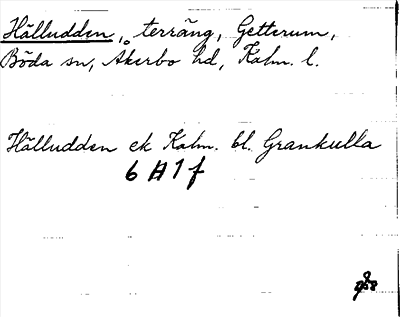 Hälludden, terräng, Getterum,
Böda sn, Åkerbo hd, Kalm. l.
Hälludden ek Kalm. bl. Grankulla
6 H 1 f